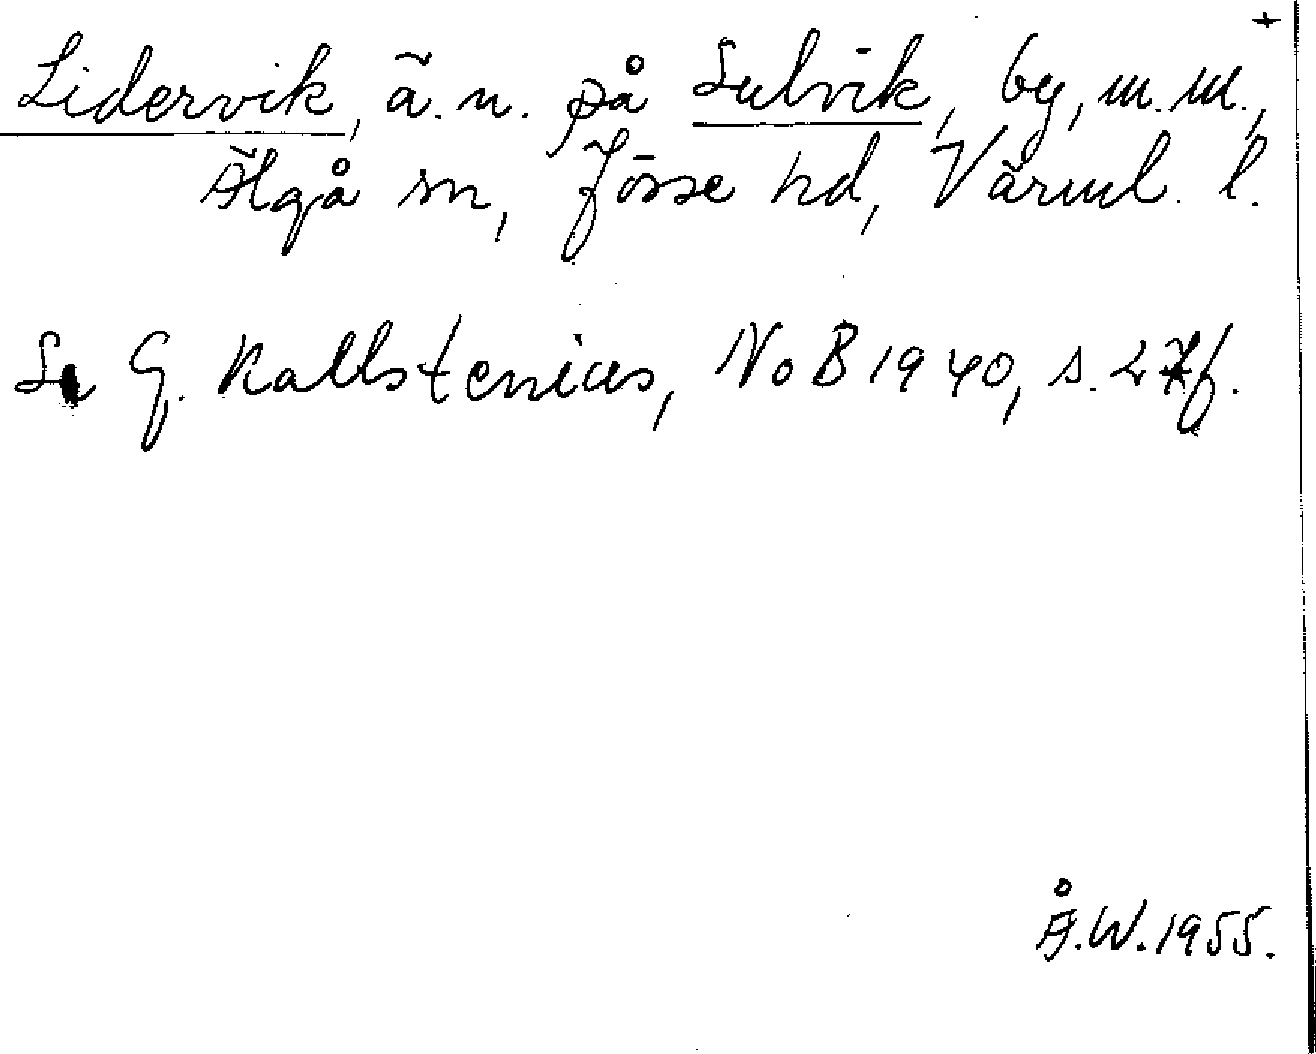 +
Lidervik, ä.n. på Sulvik, by, m.m.,
Älgå sn, Jösse hd, Värml. l.
Se G. Kallstenius, NoB 1940, s. 27f.
Å.W. 1955.